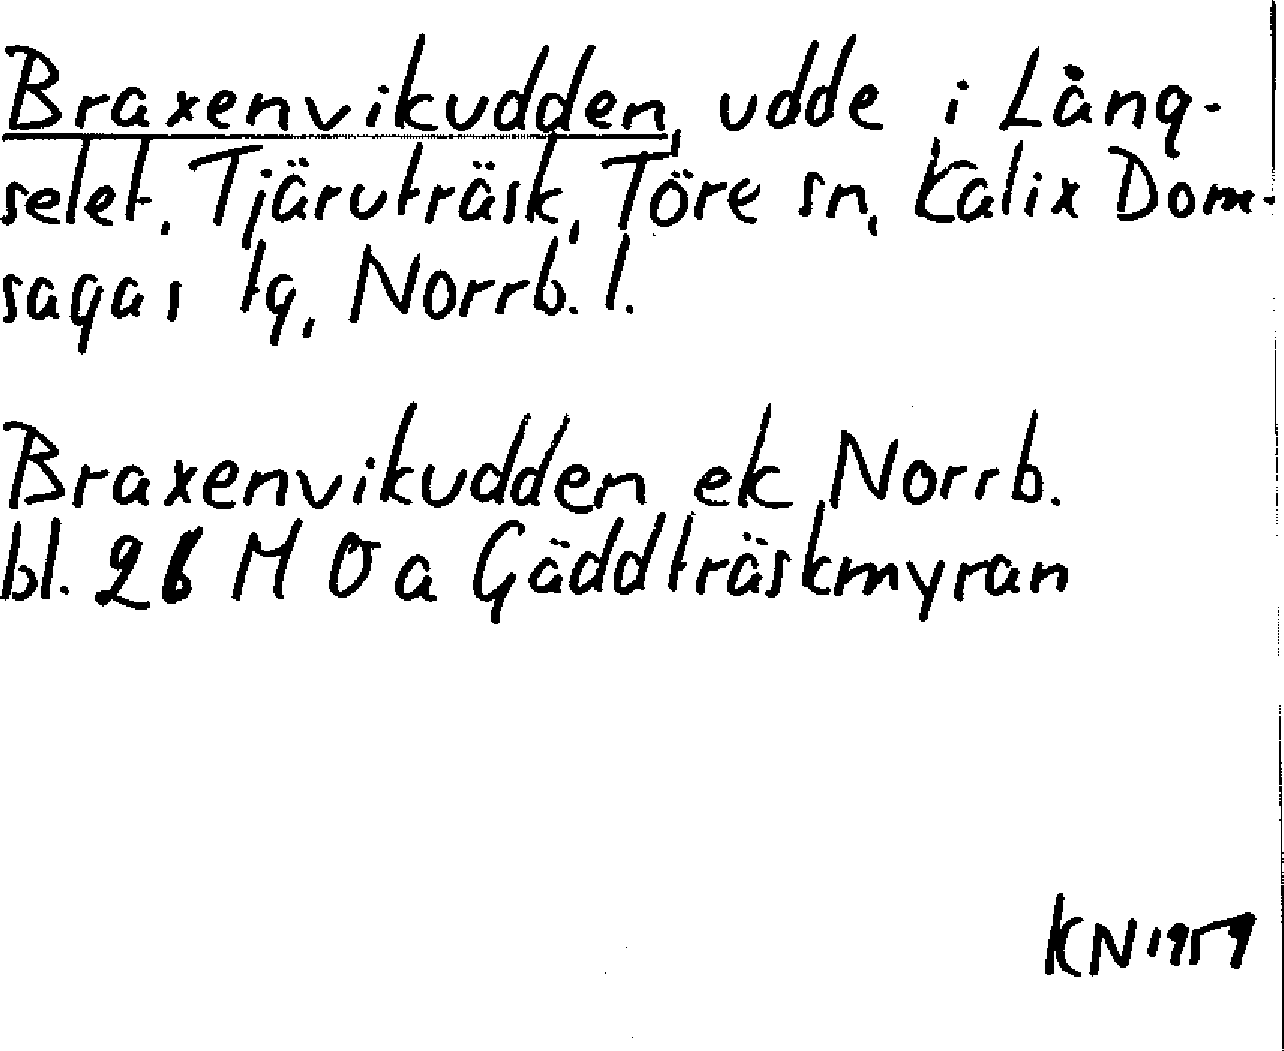 Braxenvikudden, udde i Lång-
selet, Tjäruträsk, Töre sn, Kalix Dom-
sagas tg, Norrb. l.
Braxenvikudden ek Norrb.
bl. 26 M 0 a Gäddträskmyran
KN 1959